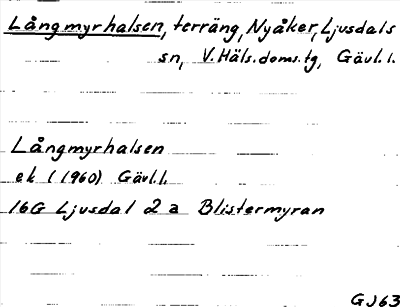 Långmyrhalsen, terräng, Nyåker, Ljusdals
sn, V. Häls. doms. tg, Gävl. l.
Långmyrhalsen
ek (1960) Gävl. l.
16G Ljusdal 2 a Blistermyran
GJ63